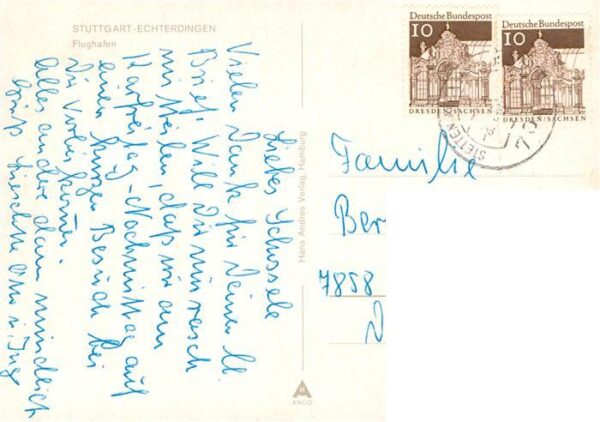 STUTTGART-ECHTERDINGEN
Flughafen
Liebes Schossele
Vielen Dank für Deinen lb.
Brief. Will Dir nur rasch
mitteilen, dass wir am
Karfreitag-Nachmittag auf
einen kurzen Besuch bei
Dir vorbei kommen.
Alles andere dann mündlich
Gruß
Hans Andres Verlag, Hamburg
ANCO
Deutsche Bundespost
10
DRESDEN/SACHSEN
Deutsche Bundespost
10
DRESDEN/SACHSEN
Familie
Ber
7858